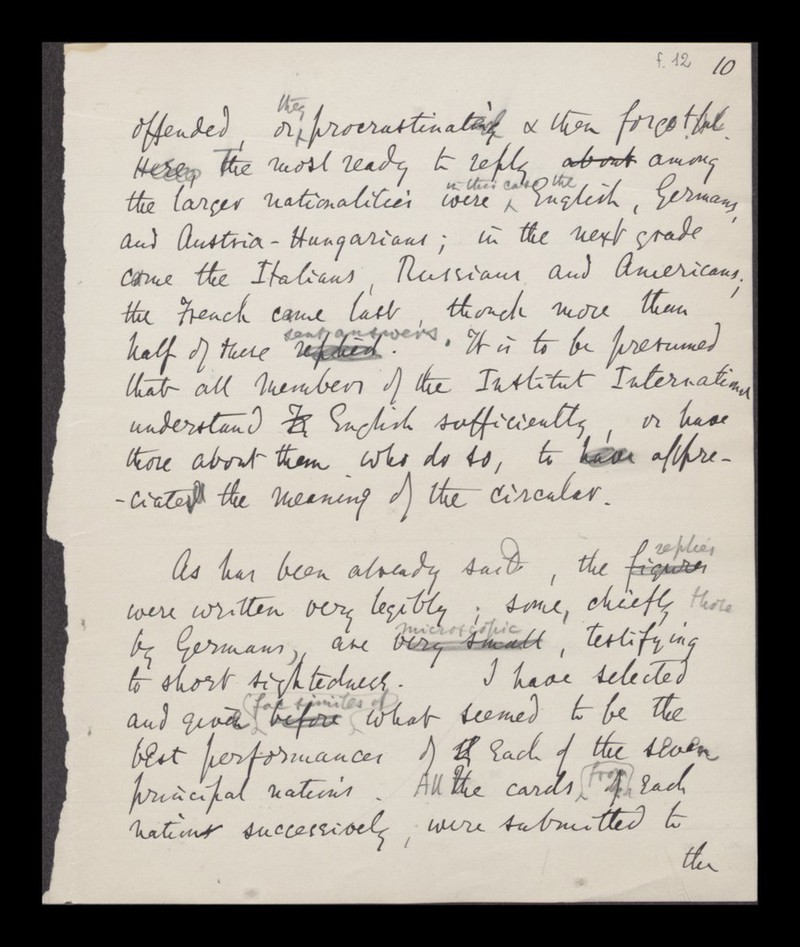 f. 12 10
they
offended, or procrastinated & then forgotful.
Here, The most ready to reply about among
in this case the
the larger nationalities were English, Germans,
and Austria-Hungarians; in the next grade
come the Italians, Russians and Americans;
the French came last, though more than
sent answers
half of these replied. It is to be presumed
that all members of the Institut International
understand English sufficiently, or have
those about them who do so, to have appre-
-ciated the meaning of the circular.
replies
As has been already said, the figures
were written very legibly; some, chiefly those
microscopic
by Germans, are very small, testifying
to short sightedness. I have selected
fac similes of
and given before what seemed to be the
best performances of Each of the seven
principal nations. All the cards from of Each
nation successively, were submitted to
the